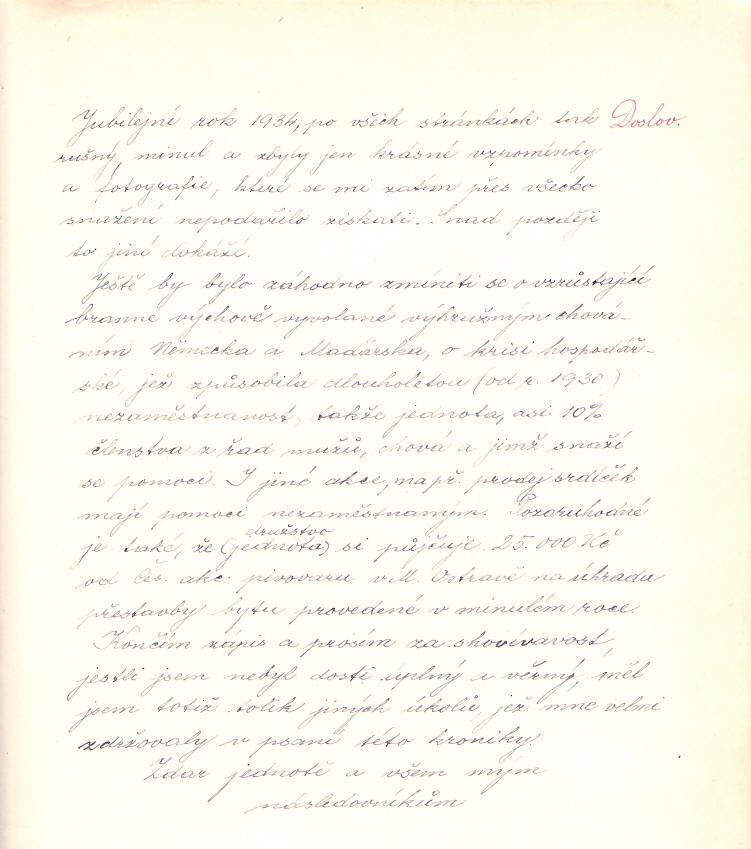 Jubilejní rok 1934, po všech stránkách tak Doslov.
rušný, minul a zbyly jen krásné vzpomínky
a fotografie, které se mi zatím přes všecko
snažení nepodařilo získati. Snad později
to jiní dokáží.
Ještě by bylo záhodno zmíniti se o vzrůstající
branné výchově vyvolané výhružným chová-
ním Německa a Maďarska, o krisi hospodář-
ské, jež způsobila dlouholetou (od r. 1930)
nezaměstnanost, takže jednota, asi 10%
členstva z řad mužů, chová a jimž snaží
se pomoci. I jiné akce, např. prodej srdíček
mají pomoci nezaměstnaným. Pozoruhodné
družstvo
je také, že (jednota) si půjčuje 25.000 Kč
od Čes. akc. pivovaru v M. Ostravě na úhradu
přestavby bytu provedené v minulém roce.
Končím zápis a prosím za shovívavost,
jestli jsem nebyl dosti úplný a věrný, měl
jsem totiž tolik jiných úkolů, jež mne velmi
zdržovaly v psaní této kroniky.
Zdar jednotě a všem mým
následovníkům